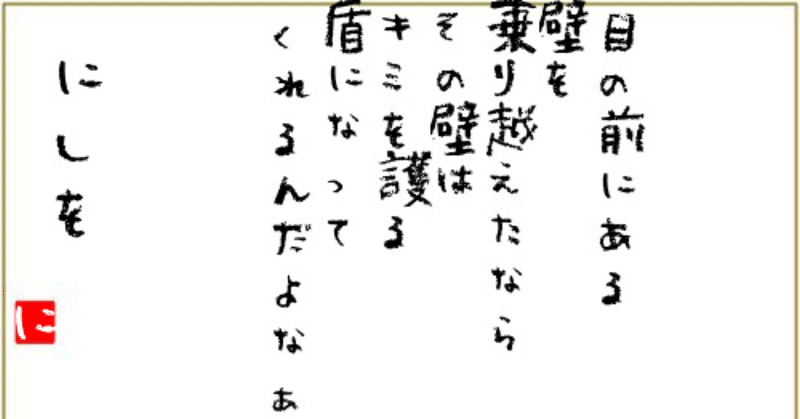 目の前にある
壁を
乗り越えたなら
その壁は
キミを護る
盾になって
くれるんだよなぁ
にしを
に